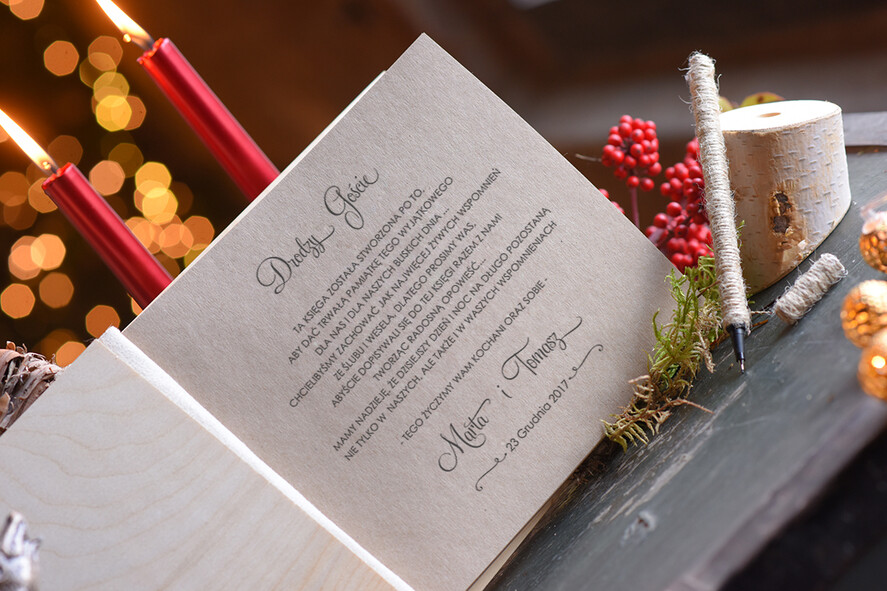 Drodzy Goście
TA KSIĘGA ZOSTAŁA STWORZONA PO TO,
ABY DAĆ TRWAŁĄ PAMIĄTKĘ TEGO WYJĄTKOWEGO
DLA NAS I DLA NASZYCH BLISKICH DNIA ...
CHCIELIBYŚMY ZACHOWAĆ JAK NAJWIĘCEJ ŻYWYCH WSPOMNIEŃ
ZE ŚLUBU I WESELA, DLATEGO PROSIMY WAS,
ABYŚCIE DOPISYWALI SIĘ DO TEJ KSIĘGI RAZEM Z NAMI
TWORZĄC RADOSNĄ OPOWIEŚĆ...
MAMY NADZIEJĘ, ŻE DZISIEJSZY DZIEŃ I NOC NA DŁUGO POZOSTANĄ
NIE TYLKO W NASZYCH, ALE TAKŻE I W WASZYCH WSPOMNIENIACH
- TEGO ŻYCZYMY WAM KOCHANI ORAZ SOBIE -
Marta i Tomasz
23 Grudnia 2017